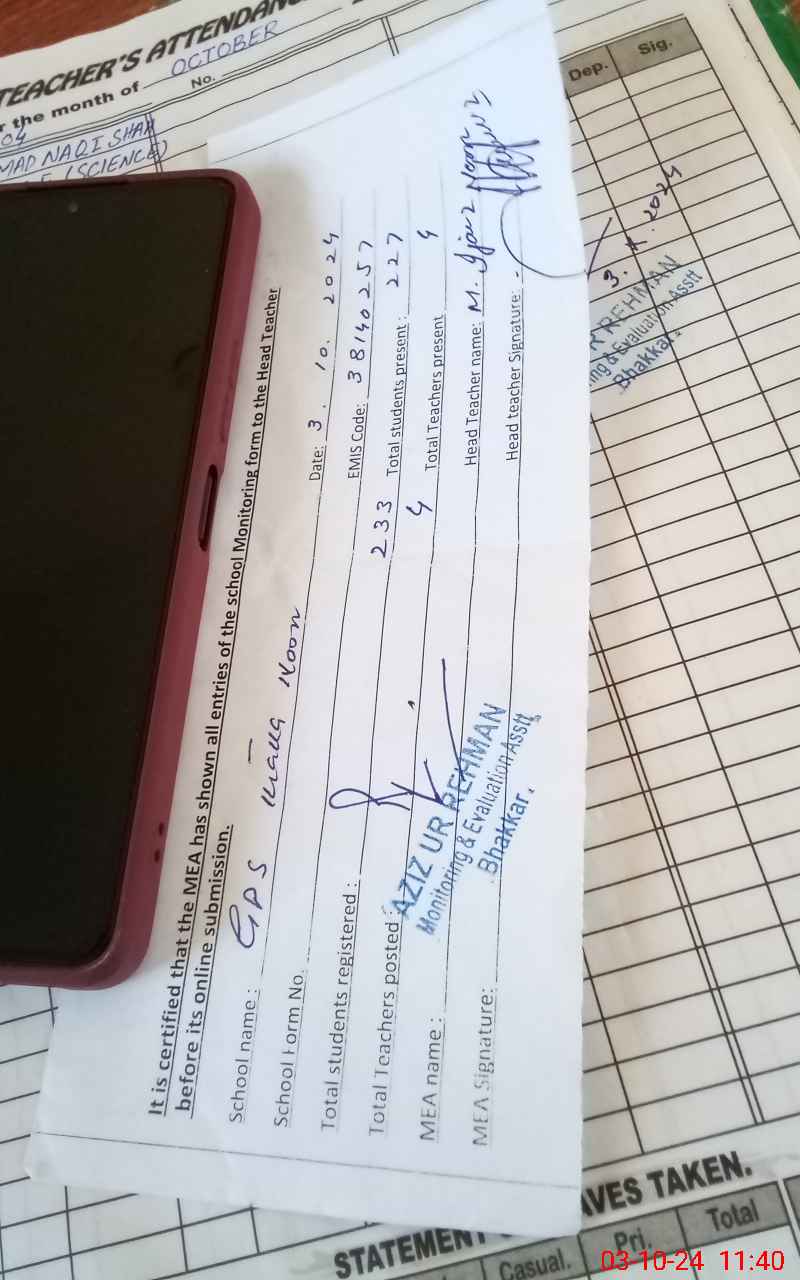 TEACHER'S ATTENDANC
r the month of OCTOBER No.
04
MAD NAQI SHAH
(SCIENCE)
Dep. Sig.
It is certified that the MEA has shown all entries of the school Monitoring form to the Head Teacher
before its online submission.
School name : GPS Noon
School Form No. Date: 3. 10. 2024
Total students registered : 233 EMIS Code: 38140257
Total students present : 227
Total Teachers posted : 4 Total Teachers present 4
MEA name : AZIZ UR REHMAN Head Teacher name: M. Ijaz Noon
Monitoring & Evaluation Asstt
Bhakkar.
MEA Signature: Head teacher Signature: -
REHMAN
ing & Evaluation Asstt
Bhakkar.
STATEMENT AVES TAKEN.
Casual. Pri. Total
03-10-24 11:40